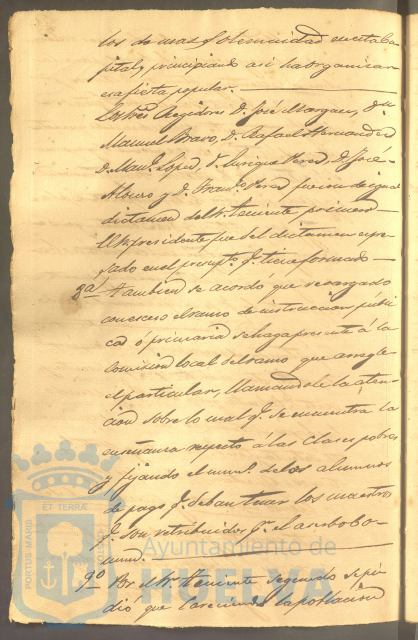 los de mas solemnidad en esta Ca
pital, principiando asi ha organizar
esa fiesta popular.
Los Sres. Regidores D. José Margau, Dn.
Manuel Bravo, D. Rafael Hernandez,
D. Manl. Lopez, D. Enrique Perez, D. José
y D. Franco. Perez fueron de igual
dictamen del Sr. Teniente primero
El Sr. presidente fue del dictamen espre
sado en el presupto. qe. tiene formado
8ª Tambien se acordo que recargado
con esceso el ramo de instruccion publi
ca ó primaria se haga presente á la
comision local del ramo que arregle
el particular, llamandole la aten
cion sobre lo mal qe. se encuentra la
enseñanza respecto á las clases pobres
y fijando el numo. de los alumnos
de pago qe. deban tener los maestros
qe. son retribuidos pr. el
9º Por el Sr. Teniente segundo se pi
dió que la poblacion
PORTUS MARIS ET TERRÆ CUSTODIA
Ayuntamiento de
HUELVA